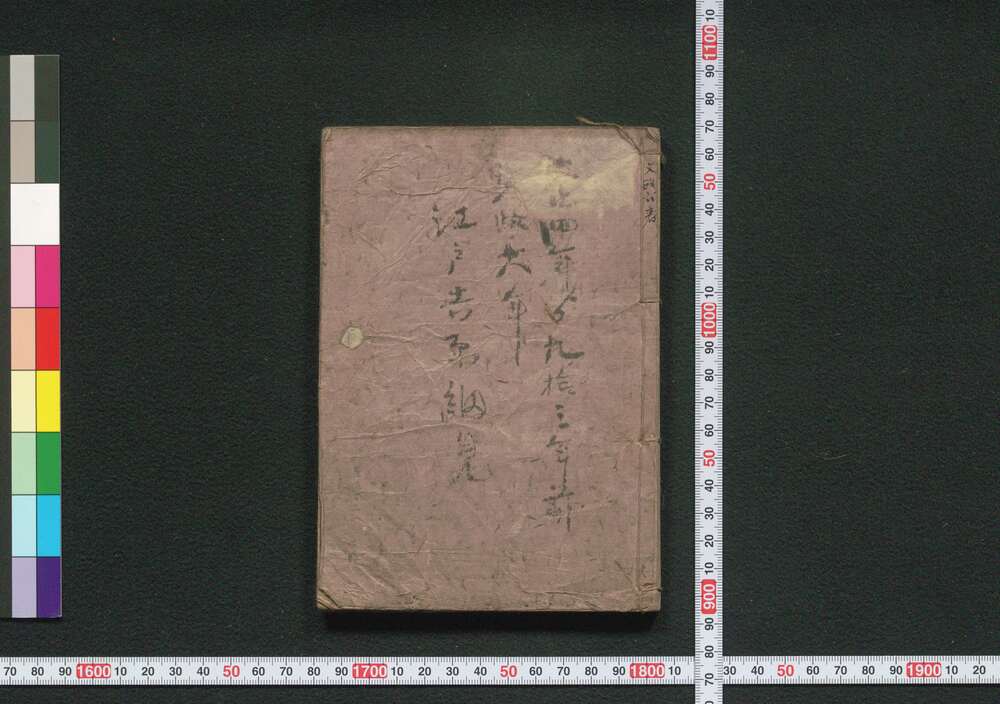 文政六春
大正四年ゟ九拾三年前
文政六年
江戸吉原細覧
10 1100 90 80 70 60 50 40 30 20 10 1000 90 80 70 60 50 40 30 20 10 900 90 80 70
70 80 90 1600 10 20 30 40 50 60 70 80 90 1700 10 20 30 40 50 60 70 80 90 1800 10 30 40 50 60 70 80 90 1900 10 20